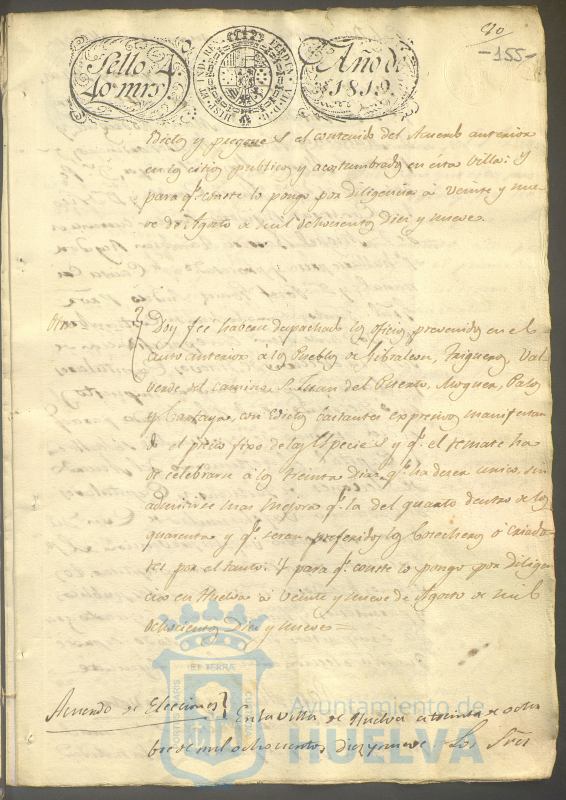 40
-155-
Sello 4
40 mrs
HISP. ET IND. REX. FERDIN. VII. D. G.
Año de
1819.
Edictos y pregones el contenido del Acuerdo anterior
en los sitios publicos y acostumbrados en esta Villa: Y
para q.e conste lo pongo por diligencia a veinte y nue-
ve de Agosto de mil ochocientos diez y nueve.
Otra
Doy fee haverse despachado los oficios prevenidos en el
auto anterior a los Pueblos de Gibraleon, Trigueros, Val-
verde del camino, S. Juan del Puerto, Moguer, Palos
y Cartaya, con Edictos expresivos manifestan
do el precio fixo de las Especies y q.e el remate ha
de celebrarse a los treinta dias q.e ha de ser unico, sin
admitirse mas mejora q.e la del quarto dentro de los
quarenta y q.e seran preferidos los Cosecheros o criado-
res por el tanto: Y para q.e conste lo pongo por diligen
cia en Huelva a veinte y nueve de Agosto de mil
ochocientos diez y nueve=
Acuerdo de Elecciones
En la villa de Huelva a treinta de octu
bre de mil ochocientos diez y nueve Los Sres
Ayuntamiento de
HUELVA